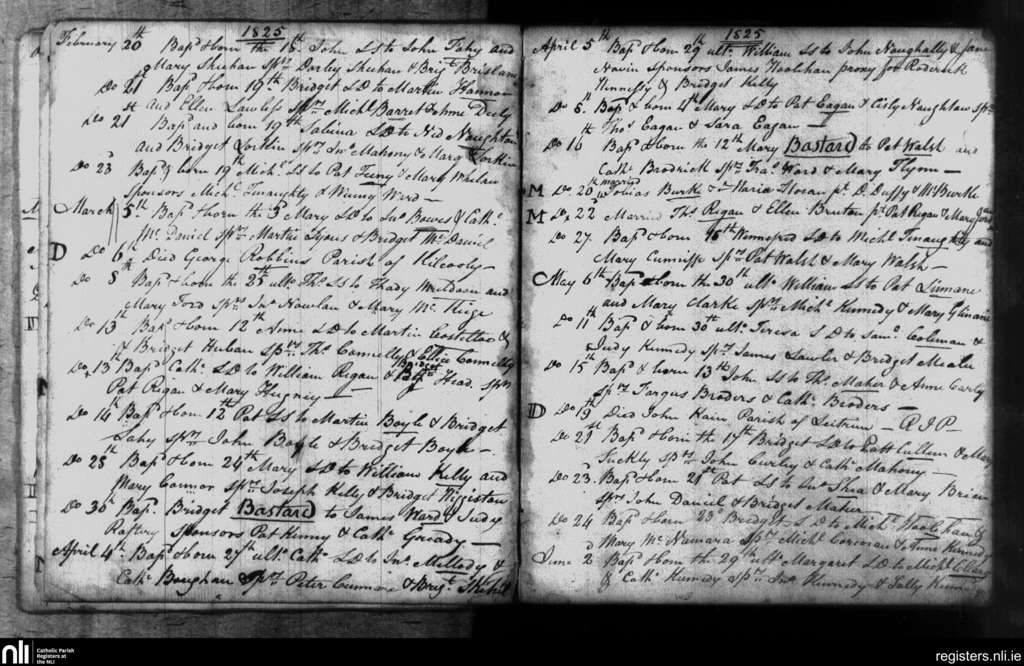 1825
February 20th Bapd & born the 18th John LS to John Fahy and
Mary Sheehan sprs Darley Sheehan & Brigt Brislane
Do 21 Bapd & born 19th Bridget LD to Martin Hannon
and Ellen Lawless sprs Michl Barret & Anne Deely
Do 21 Bapd and born 19th Sabina LD to Ned Naughton
and Bridget Lorkin sprs Jno Mahony & Marg Lorkin
Do 23 Bapd & born 19th Michl LS to Pat Feeny & Mary Whelan
Sponsors Michl Finaughty & Winny Ward
March 5th Bapd & born the 3d Mary LD to Jno Bowes & Cathe
Mc Daniel sprs Martin Lyons & Bridget Mc Daniel
D Do 6th Died George Robbins Parish of Kilcooly
Do 8th Bapd & born the 25th ulto Ths LS to Thady Muldoon and
Mary Ford sprs Jno Nowlan & Mary Mc Keige
Do 13th Bapd & born 12th Anne LD to Martin Costelloe &
Bridget Huban sprs Ths Connelly & Connelly
Do 13th Bapd Cathe LD to William Regan & Bridget Head. sprs
Pat Regan & Mary
Do 14th Bapd & born 12th Pat LS to Martin Boyle & Bridget
Fahy sprs John Boyle & Bridget Boyle
Do 28th Bapd & born 24th Mary LD to William Kelly and
Mary Connor sprs Joseph Kelly & Bridget Higgiston
Do 30th Bapd. Bridget Bastard to James Ward & Judy
Raftery Sponsors Pat Kenny & Cathe Gready
April 4th Bapd & born 27th ulto Cathe LD to Jno Mellody &
Cathe Boughan sprs Peter Cunniane & Brigt
1825
April 5th Bapd & born 29th ult. William LS to John Naughally & Jane
Navin sponsors James Hoolihan proxy for Roderick
Kennelly & Bridget Kelly
Do 6. Bapd & born 4th Mary LD to Pat Eagan & Cicly Naughton sprs
Thos Eagan & Sara Eagan
Do 16th Bapd & born the 12th Mary Bastard to Pat Walsh and
Cathe Brodrick sprs Fras Ward & Mary Flynn
M Do 20th married Tobias Burke & Maria Horan pt D. Duffy & Burke
M Do 22d Married Ths Regan & Ellen Bruton pt Pat Regan & Mary
Do 27. Bapd & born 16th Winnefred LD to Michl Finaughty and
Mary Cunniffe sprs Pat Walsh & Mary Walsh
May 6th Bapd & born the 30th ulto William LS to Pat Limane
and Mary Clarke sprs Michl Kennedy & Mary
Do 11th Bapd & born 30th ulto Teresa LD to Saml Coleman &
Judy Kennedy sprs James Lawler & Bridget Mealu
Do 15th Bapd & born 13th John LS to Ths Maher & Anne Curley
sprs Fargus Broders & Cathe Broders
D Do 19th Died John Kain Parish of Leitrum RIP
Do 21st Bapd & born the 17th Bridget LD to Patt Cullen & Mary
sprs John Curley & Cathe Mahony
Do 23. Bapd & born 21st Pat LS to Jno Shea & Mary Brien
sprs John Daniel & Bridget Maher
Do 24 Bapd & born 23d Bridget LD to Michl Hoolihan &
Mary Mc Namara sprs Michl Corcoran & Anne Kennedy
June 2d Bapd & born the 29th ulto Margaret LD to Michl
& Cathe Kennedy sprs Jno Kennedy & Sally
nli Catholic Parish Registers at the NLI
registers.nli.ie